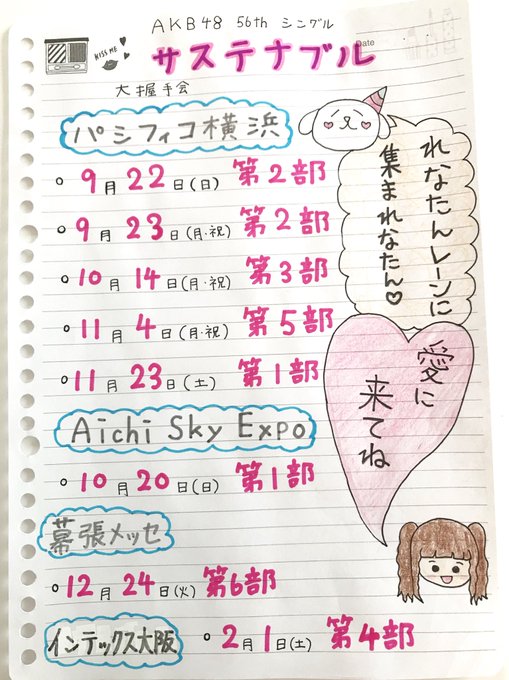 AKB48 56th シングル
KISS ME
サステナブル
Date
大握手会
パシフィコ横浜
○ 9月22日(日) 第2部
○ 9月23日(月・祝) 第2部
○ 10月14日(月・祝) 第3部
○ 11月4日(月・祝) 第5部
○ 11月23日(土) 第1部
Aichi Sky Expo
○ 10月20日(日) 第1部
幕張メッセ
○ 12月24日(火) 第6部
インテックス大阪 ○ 2月1日(土) 第4部
れなたんレーンに
集まれなたん♡
愛に
来てね